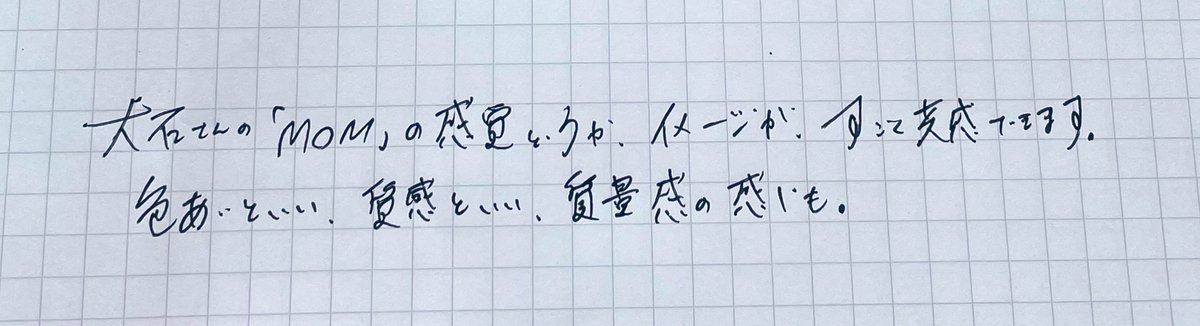 大石さんの「MOM」の感覚というか、イメージが、すごく実感できます。
色あいといい、質感といい、質量感の感じも。